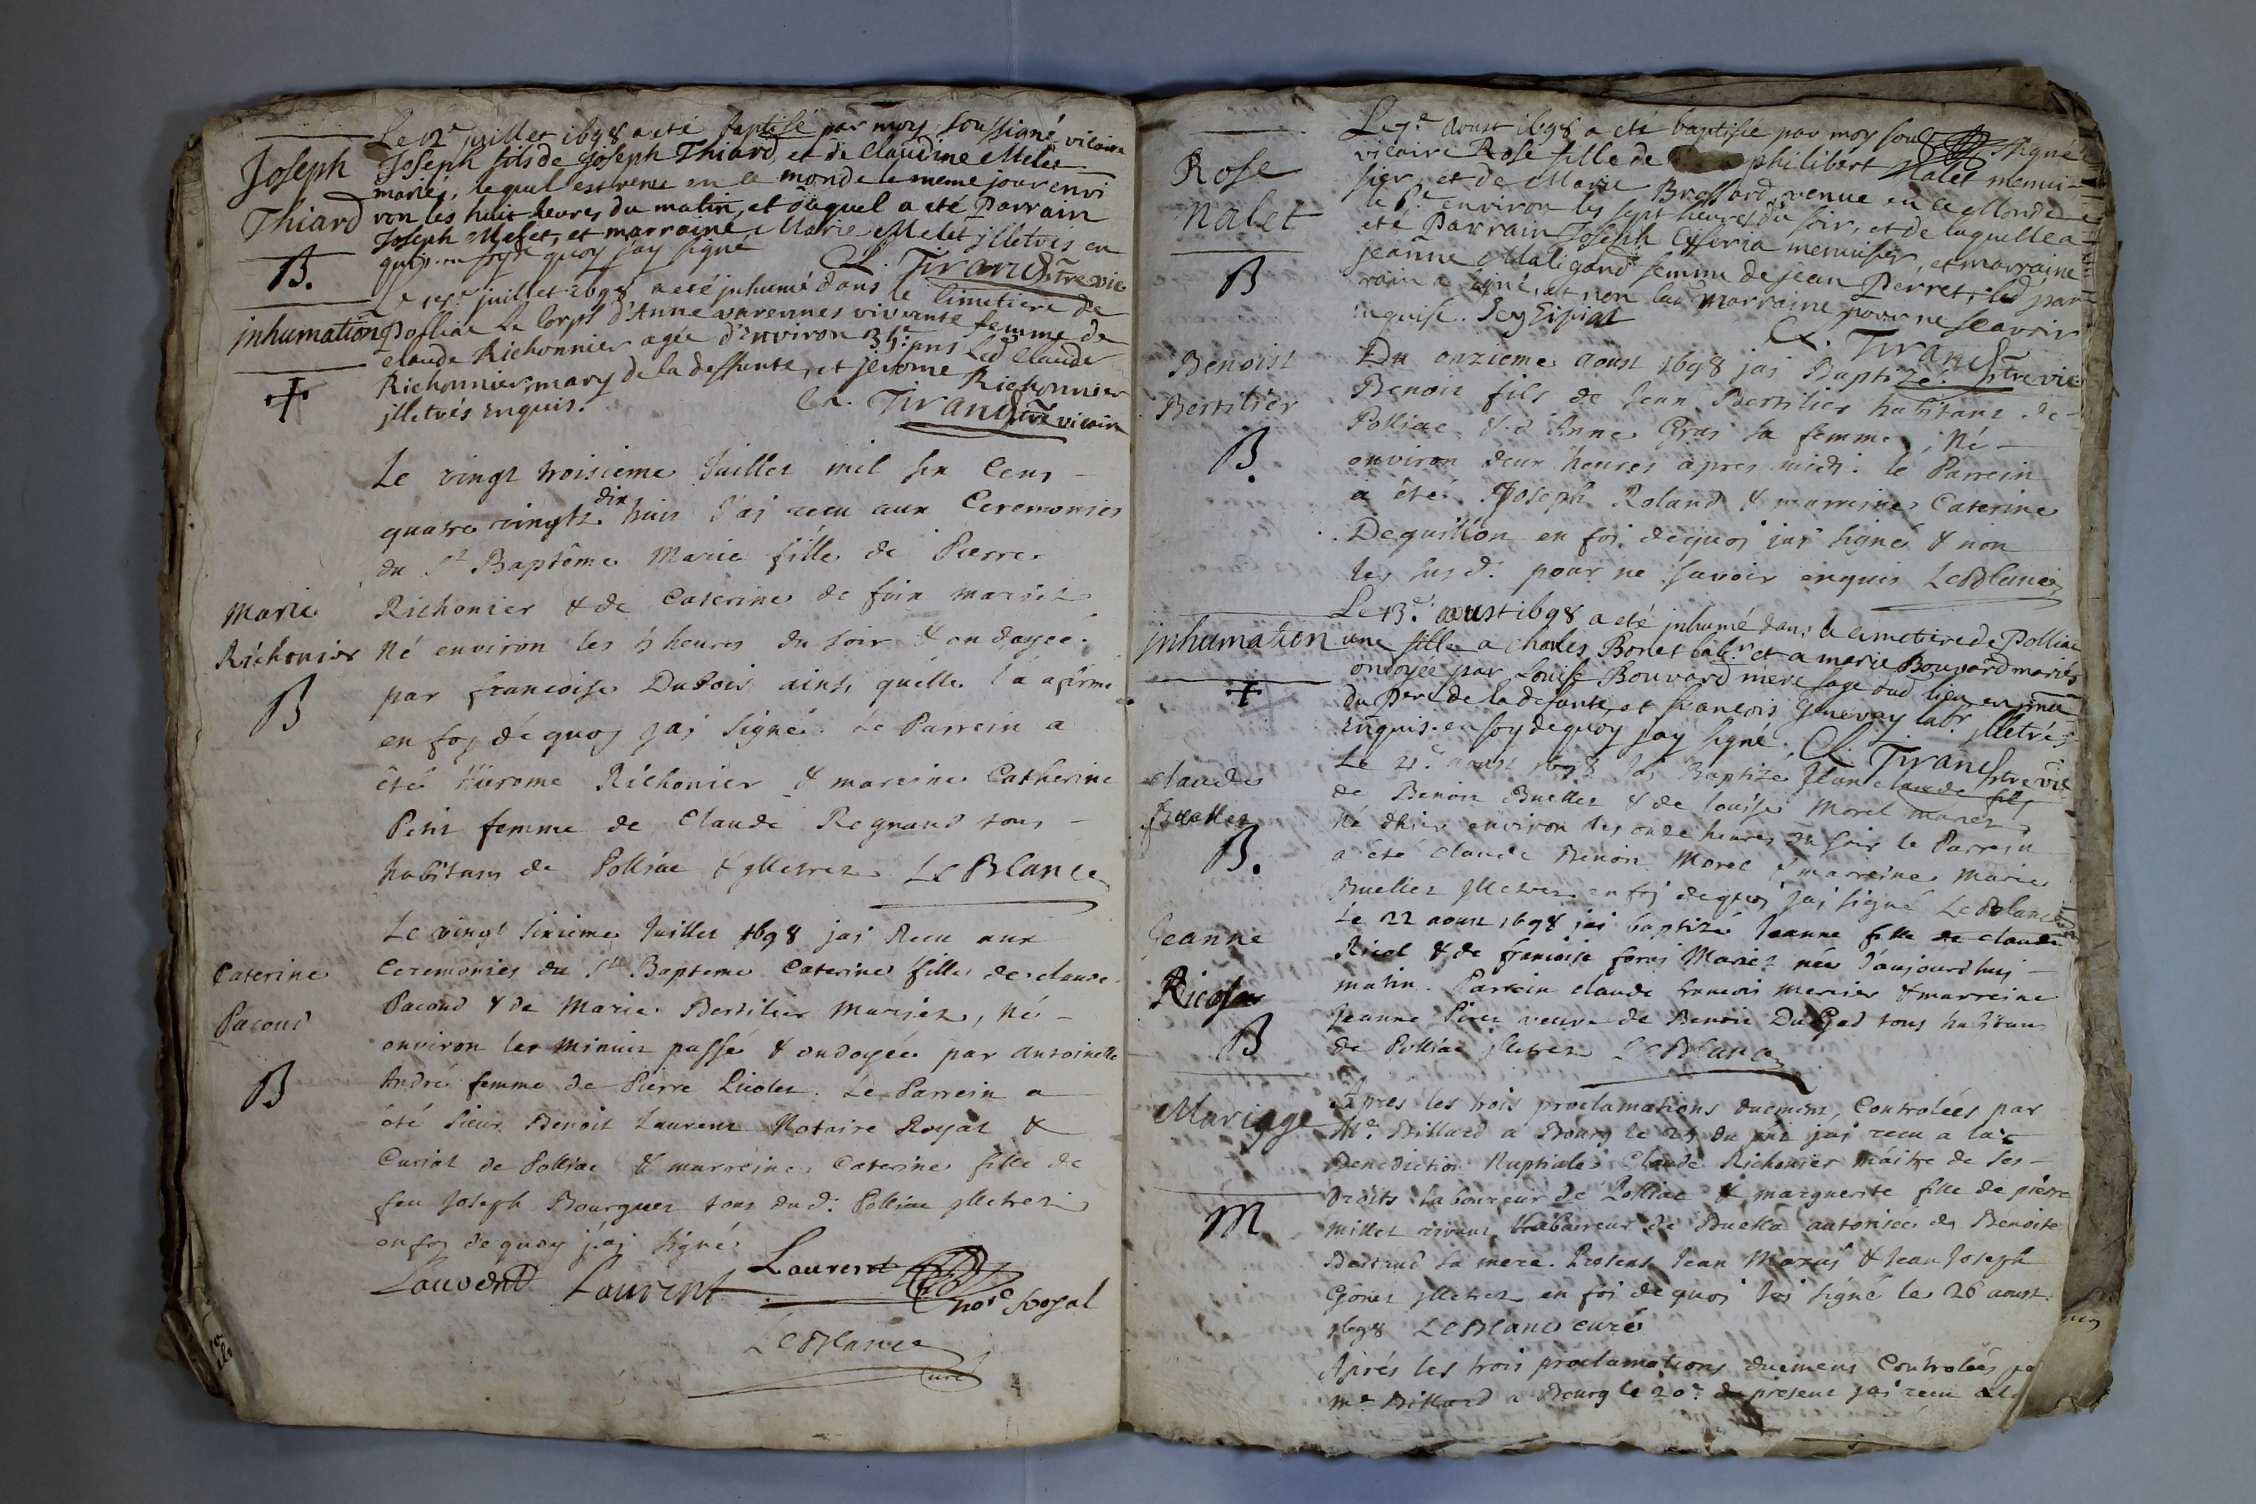 Joseph
Thiard
B.
Le 12e juillet 1698 a eté baptisé par moy soussigné vicaire
Joseph fils de Joseph Thiard et de Claudine Melet
mariés, lequel est venu en ce monde le meme jour envi
ron les huit heures du matin, et duquel a eté Parrain
Joseph Melet, et marraine Marie Melet jlletrés en
quis. en foy de quoy j'ay signé
Cl. Tirand ptre vic
inhumation
+
juillet 1698 a eté jnhumé dans le Cimetiere de
Polliac le Corps d'Anne varennes vivante femme de
Claude Richonnier agée d'environ 35 ans led Claude
Richonnier mary de la deffunte, et jerome Richonnier
jlletrés enquis.
Cl. Tirand ptre vicaire
Marie
Richonier
B
Le vingt troisieme Juillet mil six Cens
quatre vingts dix huit J'ai receu aux Ceremonies
du St Baptême Marie fille de Pierre
Richonier & de Caterine de foix mariez
Né environ les 5 heures du soir & ondoyée
par francoise Dubois ainsi qu'elle l'a afirmé
en foy de quoy j'ai signé. Le Parrein a
été Hierome Richonier & mareine Catherine
Petit femme de Claude Regnaud tous
habitans de Polliac & jlletrez LeBlanc
Caterine
Pacoud
B
Le vingt sixieme Juillet 1698 jai Receu aux
Ceremonies du St Bapteme Caterine fille de claude
Pacoud & de Marie Bertilier Mariez, Né
environ les minuit passé & ondoyée par Antoinette
André femme de Pierre Picolet. Le Parrein a
été sieur Benoit Laurent Notaire Royal &
Curial de Polliac & marreine Caterine fille de
feu Joseph Bourguet tous dud. Polliac jlletrez
en foy de quoy j'ai signé
Laurent Laurent Laurent
nore Royal
LeBlanc
curé
Rose
Nalet
B
Le 7e aoust 1698 a eté baptisée par moy sous signé
vicaire Rose fille de philibert Nalet menui-
sier, et de Marie Brossard venue en ce Monde
le 6e environ les sept heures du soir, et de laquelle a
eté Parrain Joseph menuisier, et marraine
jeanne Maligand femme de jean Perret, led par
rain a signé, et non lad marraine pour ne sçavoir
enquise.
Cl. Tirand ptre vic
Benoist
Bertilier
B.
Du onzieme aoust 1698 jai Baptizé
Benoit fils de Jean Bertilier habitant de
Polliac & d'Anne Gras sa femme, Né
environ deux heures apres midi. le Parrein
a été Joseph Roland & marreine Caterine
Deguillon en foi dequoi jai signé & non
les susd. pour ne savoir enquis LeBlanc
jnhumation
+
Le 13e aoust 1698 a eté jnhumé dans le cimetiere de Polliac
une fille a charles Bonet labr. et a marie Bouvard mariés
ondoyée par Louise Bouvard mere sage dud lieu en pnce
du Pere de la defunte et francois Genevay labr. jlletrés
enquis. en foy dequoy j'ay signé. Cl. Tirand ptre vic
claude
Buellet
B.
Le 21e aoust 1698 jai Baptizé Jean claude fils
de Benoit Buellet & de louise Morel mariez,
Né d'hier environ les onze heures du soir le Parrein
a été claude Benoit Morel & marreine Marie
Buellet jlletrez en foi dequoi jai signé LeBlanc
Jeanne
Ricol
B
Le 22 aoust 1698 jai baptizé Jeanne fille de claude
Ricol & de francoise foras Mariez née d'aujourd'huy
matin. Parrein claude francois Mercier & marreine
Jeanne Piret veuve de Benoit DuGad tous habitans
de Polliac jlletrez LeBlanc
Mariage
M
Apres les trois proclamations duement Controlées par
Me Billard a Bourg le 25 du pnt jai receu a la
Benediction Nuptiale Claude Richonier maitre de ses
Droits laboureur de Polliac & marguerite fille de pierre
Millet vivant laboureur de Buella autorisée de Benoite
Bertrand sa mere. Presens Jean Morus & Jean Joseph
Gonet jlletrez en foi de quoi jai signé le 26 aoust
1698 LeBlanc curé
Aprés les trois proclamations duement Controlées pa
Me Billard a Bourg le 20e du present jai receu a la